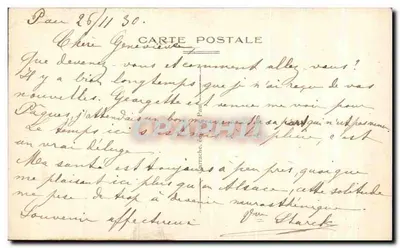 Pau 26/11 30.
Chère Geneviève,
CARTE POSTALE
Que devenez-vous et comment allez-vous?
Il y a bien longtemps que je n'ai reçu de vos
nouvelles. Georgette est venue me voir pour
Pâques, j'attendais
CPARAMA
Le temps ici pluie, c'est
un vrai déluge.
Ma santé est toujours à peu près, quoique
me plaisant ici plus qu'en Alsace, cette solitude
me pèse de trop à devenir neurasthénique.
Souvenir affectueux